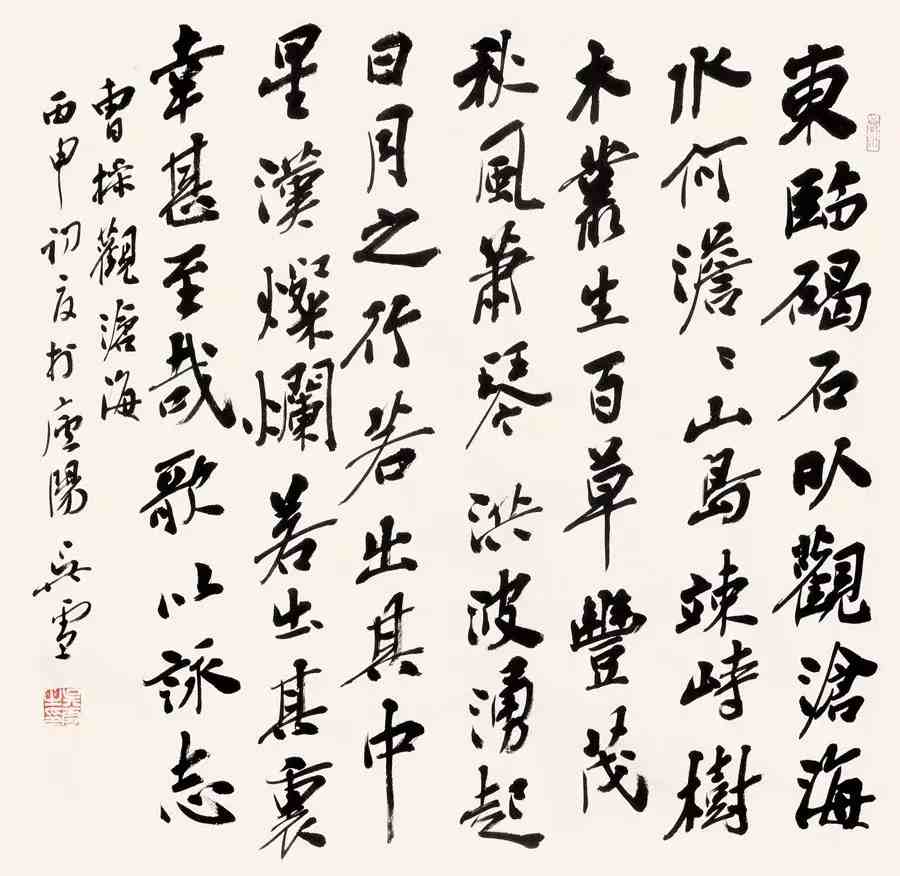 東臨碣石以觀滄海
水何澹〻山島竦峙樹
木叢生百草豐茂
秋風蕭琴洪波湧起
日月之行若出其中
星漢燦爛若出其裏
幸甚至哉歌以詠志
曹操觀滄海
丙申初夏於廬陽吳雪